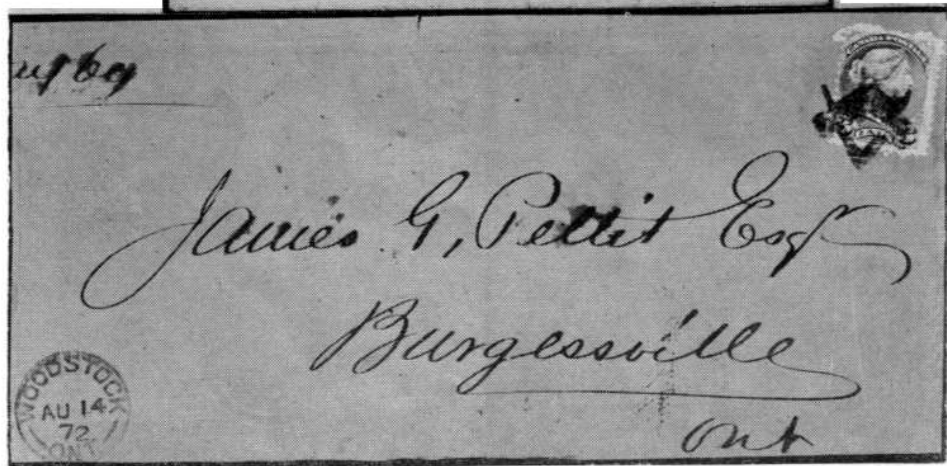 James G, Pettit Esqr
Burgessville
Ont
WOODSTOCK
AU 14
72
ONT